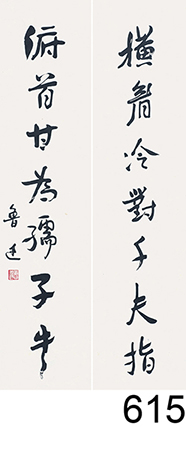 橫眉冷對千夫指
俯首甘為孺子牛
魯迅
615